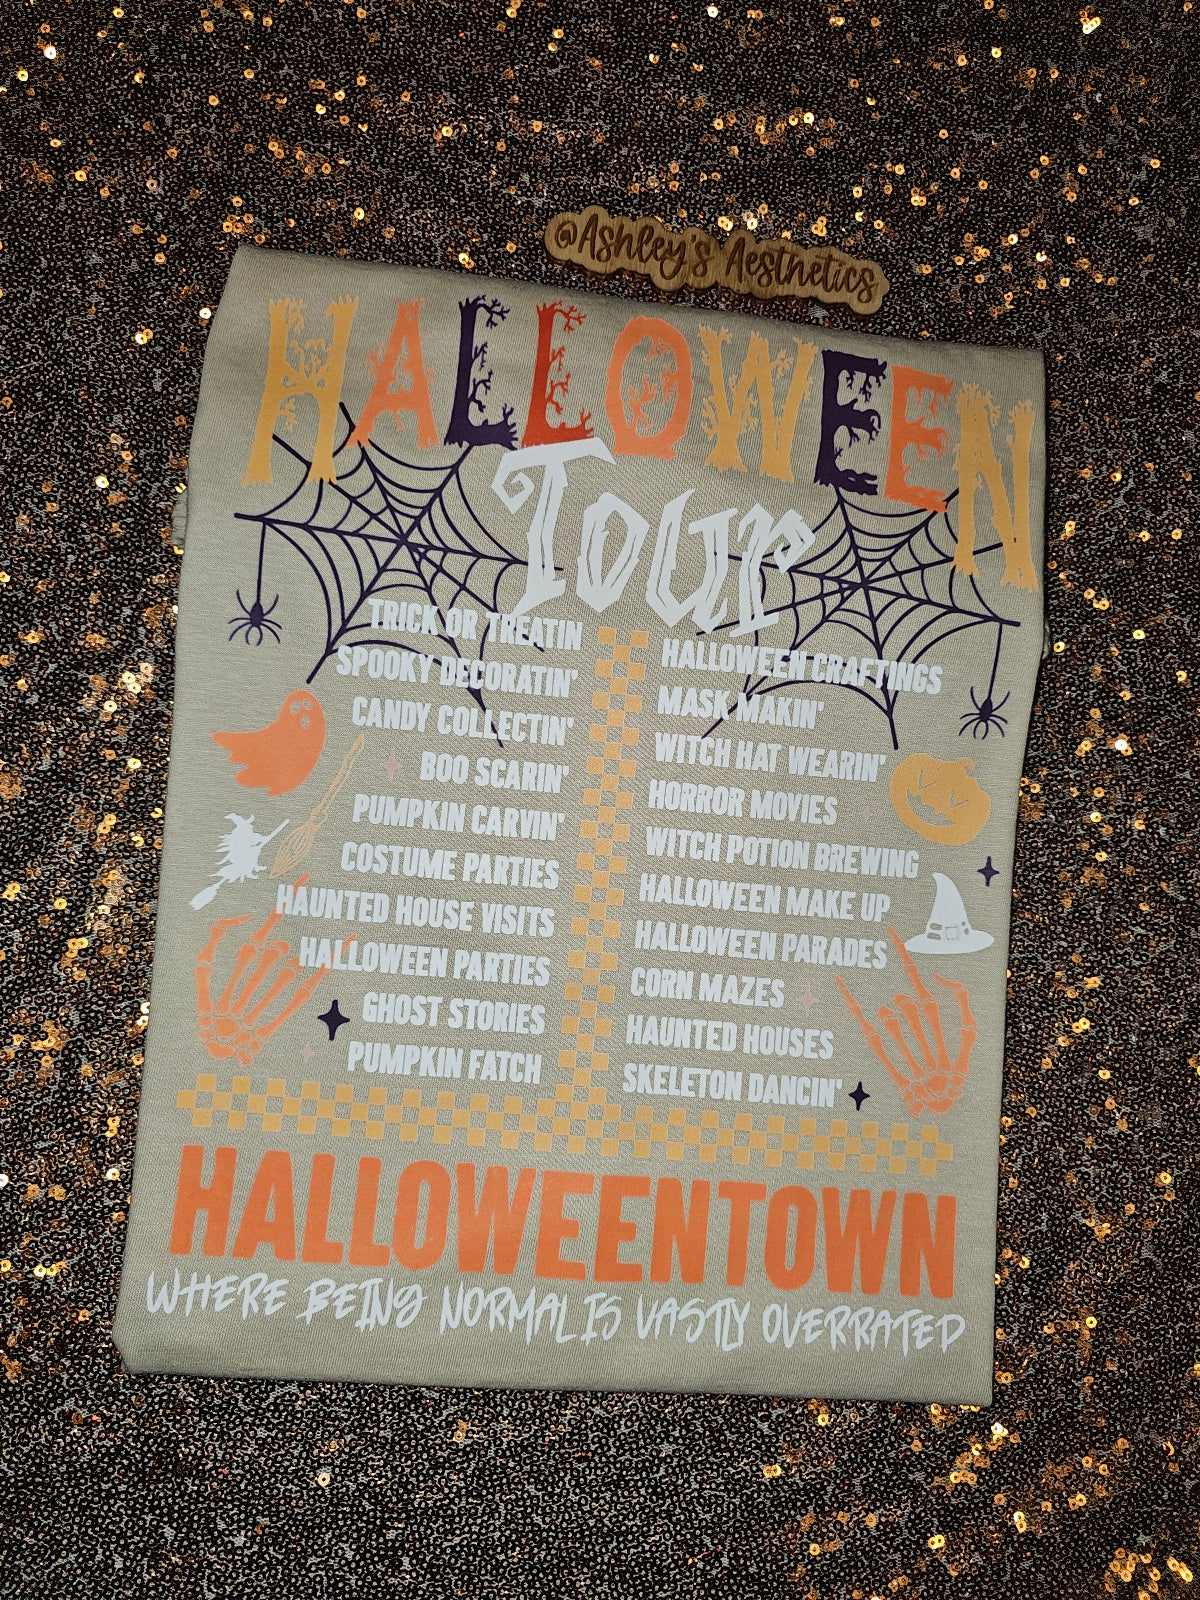 @Ashley's Aesthetics
HALLOWEEN
Tour
TRICK OR TREATIN
SPOOKY DECORATIN'
CANDY COLLECTIN'
BOO SCARIN'
PUMPKIN CARVIN'
COSTUME PARTIES
HAUNTED HOUSE VISITS
HALLOWEEN PARTIES
GHOST STORIES
PUMPKIN FATCH
HALLOWEEN CRAFTINGS
MASK MAKIN'
WITCH HAT WEARIN'
HORROR MOVIES
WITCH POTION BREWING
HALLOWEEN MAKE UP
HALLOWEEN PARADES
CORN MAZES
HAUNTED HOUSES
SKELETON DANCIN'
HALLOWEENTOWN
WHERE BEING NORMAL IS VASTLY OVERRATED